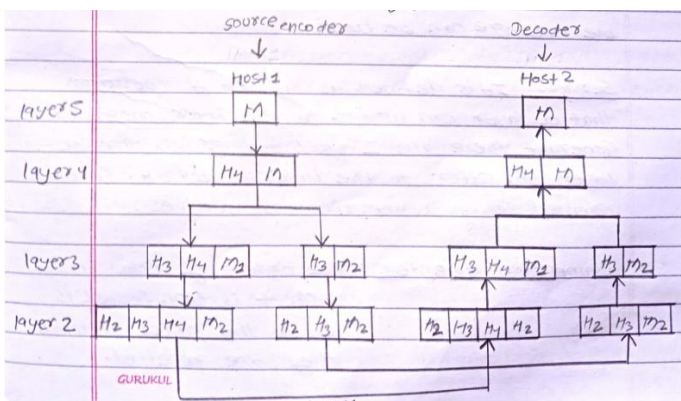 source encoder Decoder
Host 1 Host 2
layer 5 M M
layer 4 H4 M H4 M
layer 3 H3 H4 M1 H3 M2 H3 H4 M1 H3 M2
layer 2 H2 H3 H4 M2 H2 H3 M2 H2 H3 H4 H2 H2 H3 M2
GURUKUL